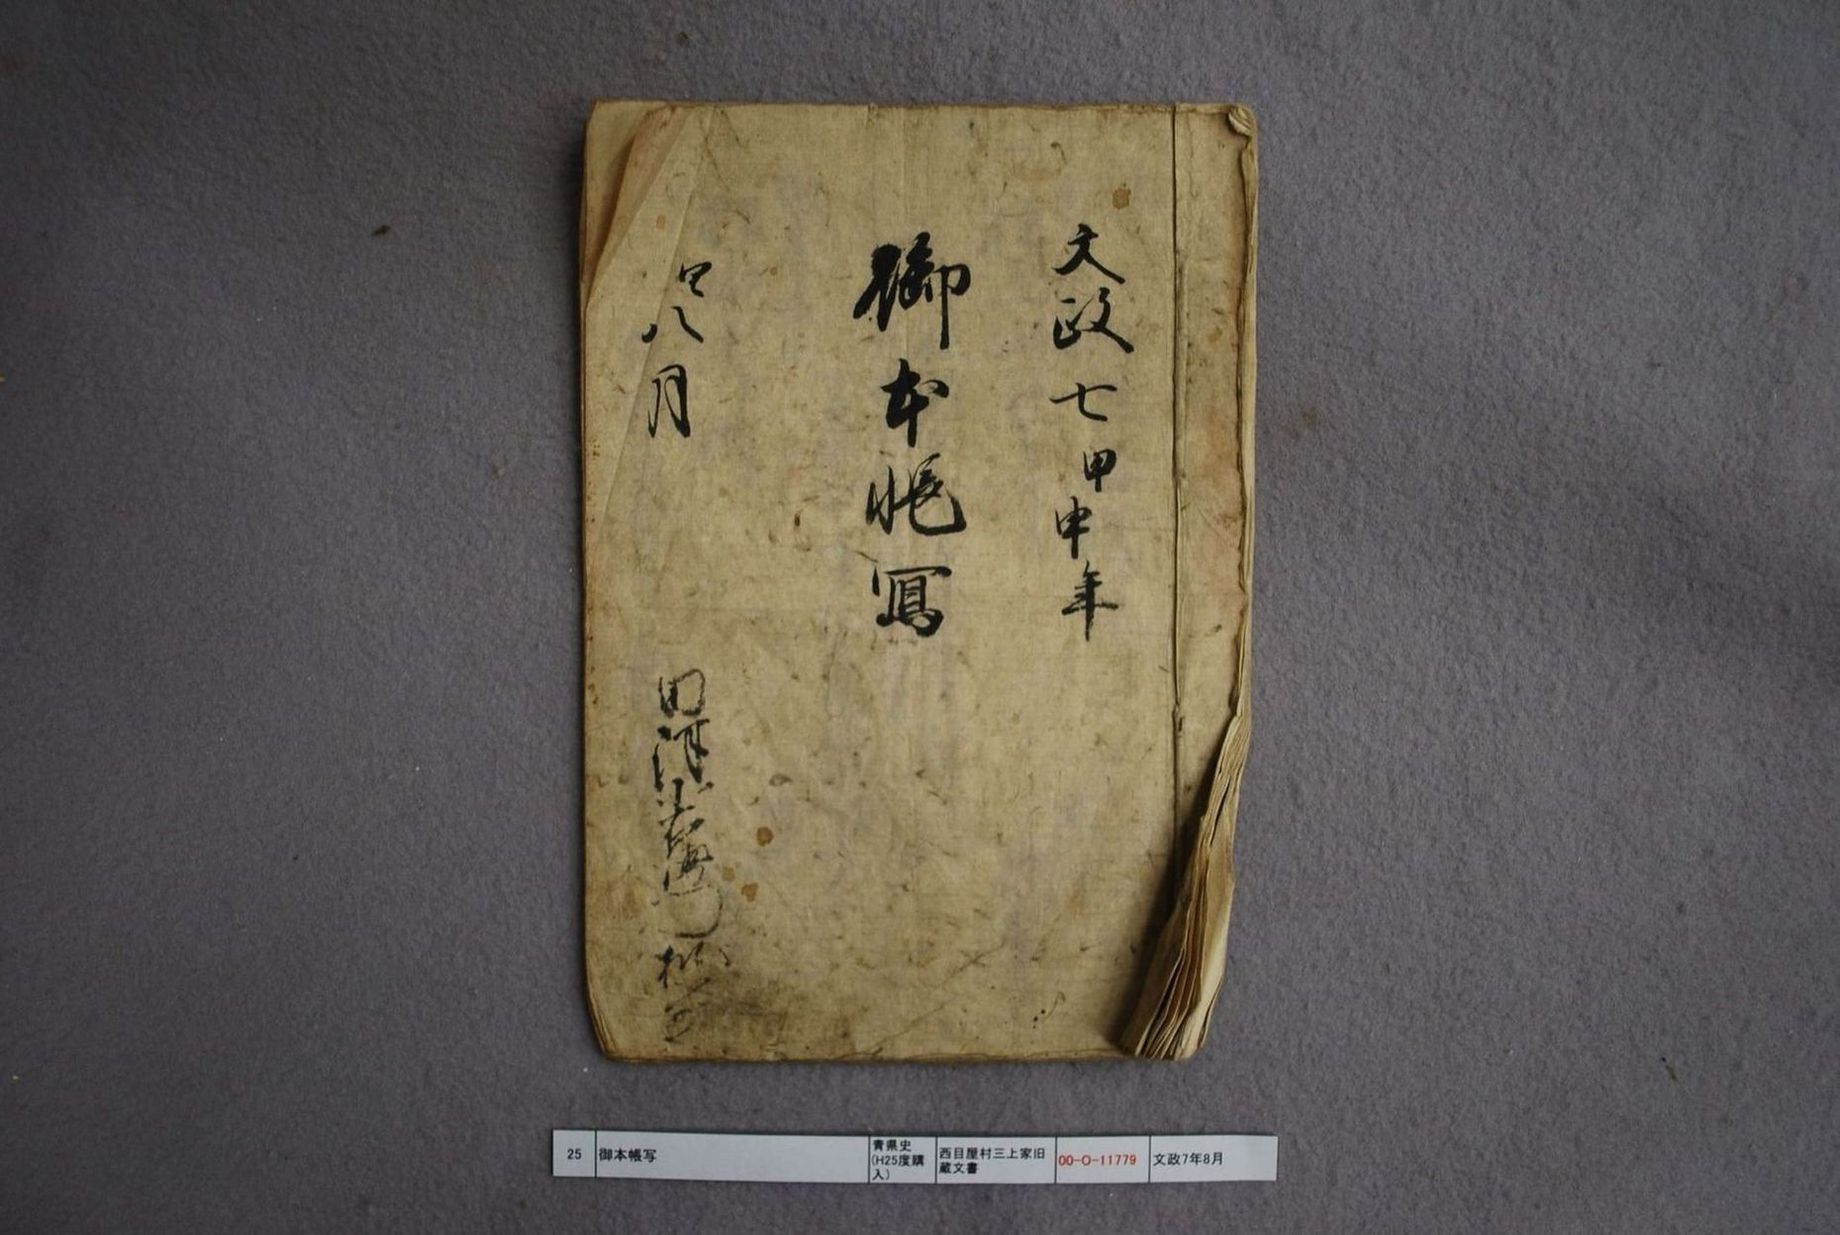 文政七甲申年
御本帳寫
閏八月
田澤
25
御本帳写
青県史
(H25度購
入)
西目屋村三上家旧
蔵文書
00-O-11779
文政7年8月